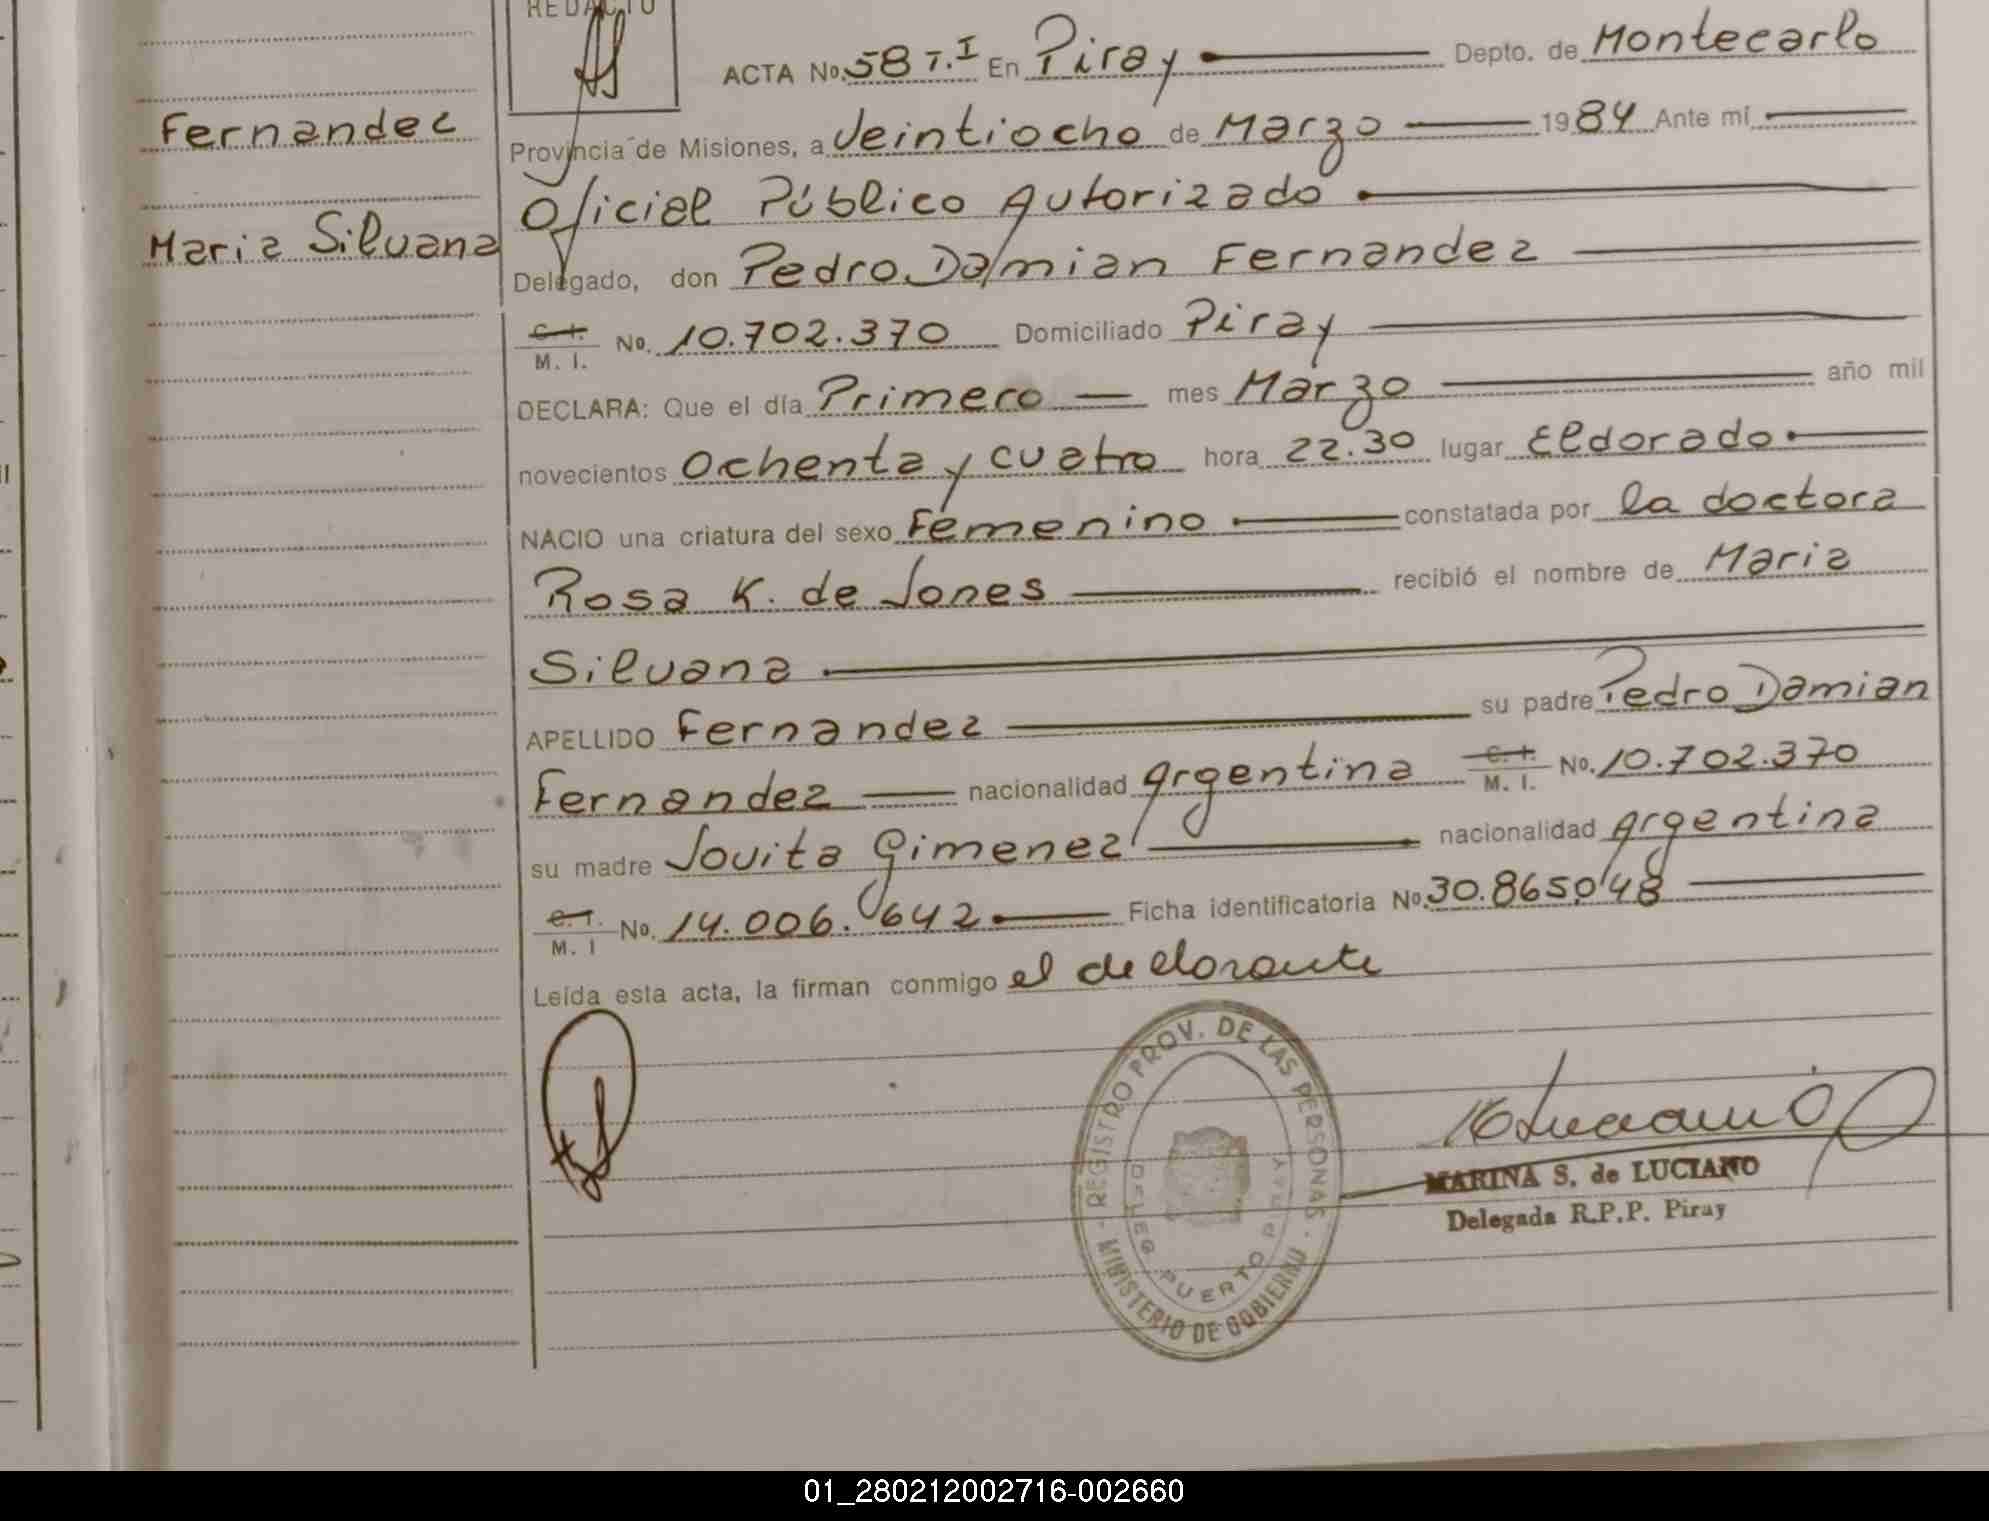 REDACTO
ACTA No. 58 T.I En Piray Depto. de Montecarlo
Fernandez
Provincia de Misiones, a Veintiocho de Marzo 1984 Ante mí
Oficial Público Autorizado
Maria Silvana
Delegado, don Pedro Damian Fernandez
C. I.
M. I. No. 10.702.370 Domiciliado Piray
DECLARA: Que el día Primero mes Marzo año mil
novecientos Ochenta y cuatro hora 22.30 lugar Eldorado
NACIO una criatura del sexo Femenino constatada por la doctora
Rosa K. de Jones recibió el nombre de Maria
Silvana
APELLIDO Fernandez su padre Pedro Damian
Fernandez nacionalidad Argentina C. I. M. I. No. 10.702.370
su madre Jovita Gimenez nacionalidad Argentina
C. I. M. I No. 14.006.642 Ficha identificatoria No. 30.865.048
Leída esta acta, la firman conmigo el declarante
REGISTRO PROV. DE LAS PERSONAS
MINISTERIO DE GOBIERNO
PUERTO PIRAY
MARINA S. de LUCIANO
Delegada R.P.P. Piray
01_280212002716-002660